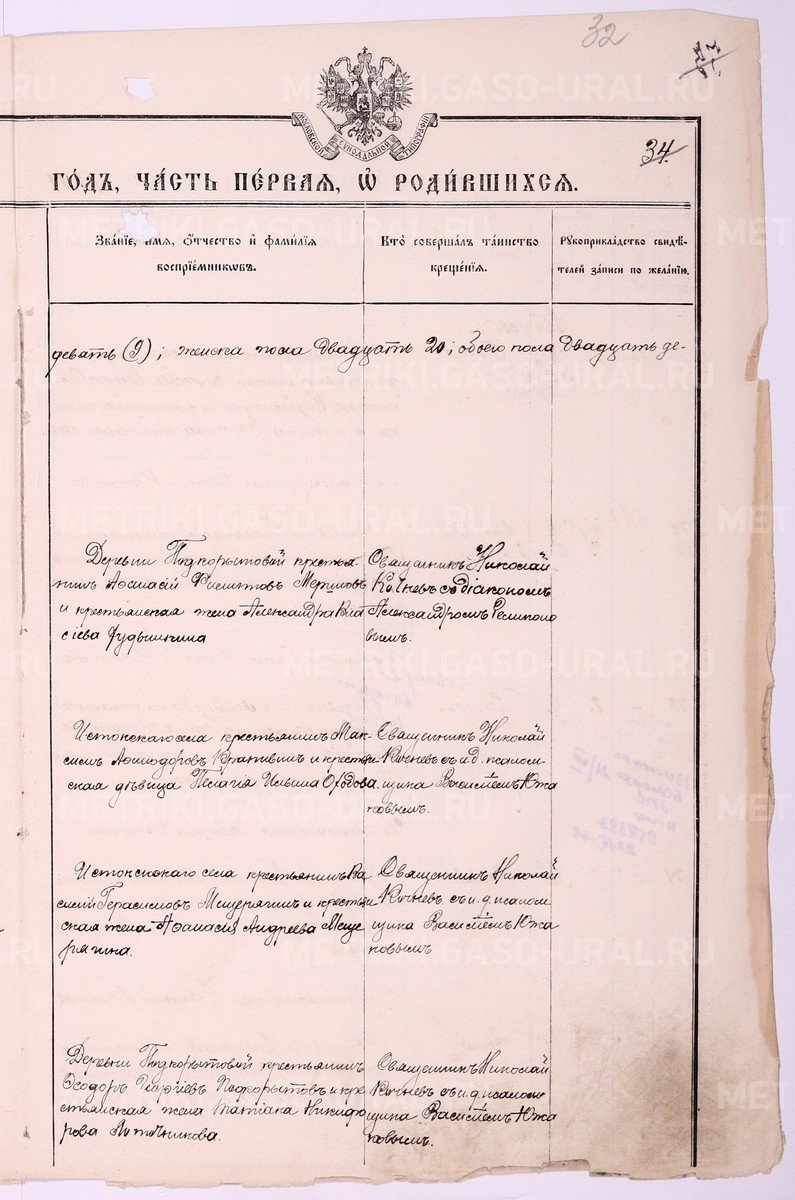 32
34.
МОСКОВСКОЙ СѴНОДАЛЬНОЙ ТИПОГРАФІИ
ГО́ДЪ, ЧА́СТЬ ПЕ́РВАЯ, Ѡ҆ РОДИ́ВШИХСЯ.
Зва́нїе, и҆́мя, ѻ҆́тчество и҆ фами́лїя
воспрїе́мникѡвъ.
Кто̀ соверша́лъ та́инство
креще́нїя.
Рꙋкоприкла́дство свидѣ́-
телей за́писи по жела́нїю.
девать (9); женска пола двадцать 20; обоего пола двадцать де-
Деревни Подкорытовой крестья-
нинъ Аѳанасій Филиповъ
и крестьянская жена Александра Вла
сіева
Священникъ Николай
Кочневъ съ діакономъ
Александромъ
вымъ.
Истокскаго села крестьянинъ Мак-
симъ Крапивинъ и крестьян
ская дѣвица Пелагія Ильина
Священникъ Николай
Кочневъ съ и.д. псалом-
щика Василіемъ Южа
ковымъ.
Истокскаго села крестьянинъ Ва
силій Герасимовъ Мещерягинъ и крестьян
ская жена Аѳанасія Андреева Меще
рягина.
Священникъ Николай
Кочневъ съ и.д. псалом
щика Василіемъ Южа
ковымъ
Деревни Подкорытовой крестьянинъ
Ѳеодоръ Георгіевъ Подкорытовъ и кре
стьянская жена Татіана Никифо
рова
Священникъ Николай
Кочневъ съ и.д. псалом
щика Василіемъ Южа
ковымъ.
METRIKI.GASO-URAL.RU